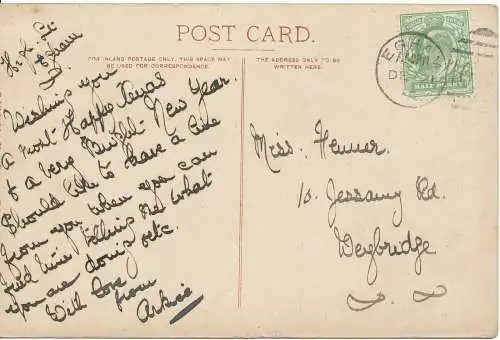 POST CARD.
FOR INLAND POSTAGE ONLY, THIS SPACE MAY
BE USED FOR CORRESPONDENCE.
THE ADDRESS ONLY TO BE
WRITTEN HERE.
HALF PENNY
EGHAM
DE
Wishing you
a Most Happy Xmas
& a very Bright New Year.
Should like to have a line
from you when you can
find time telling me what
you are doing etc.
With love
from
Miss. Fenner.
10. Jessamy Rd.
Weybridge